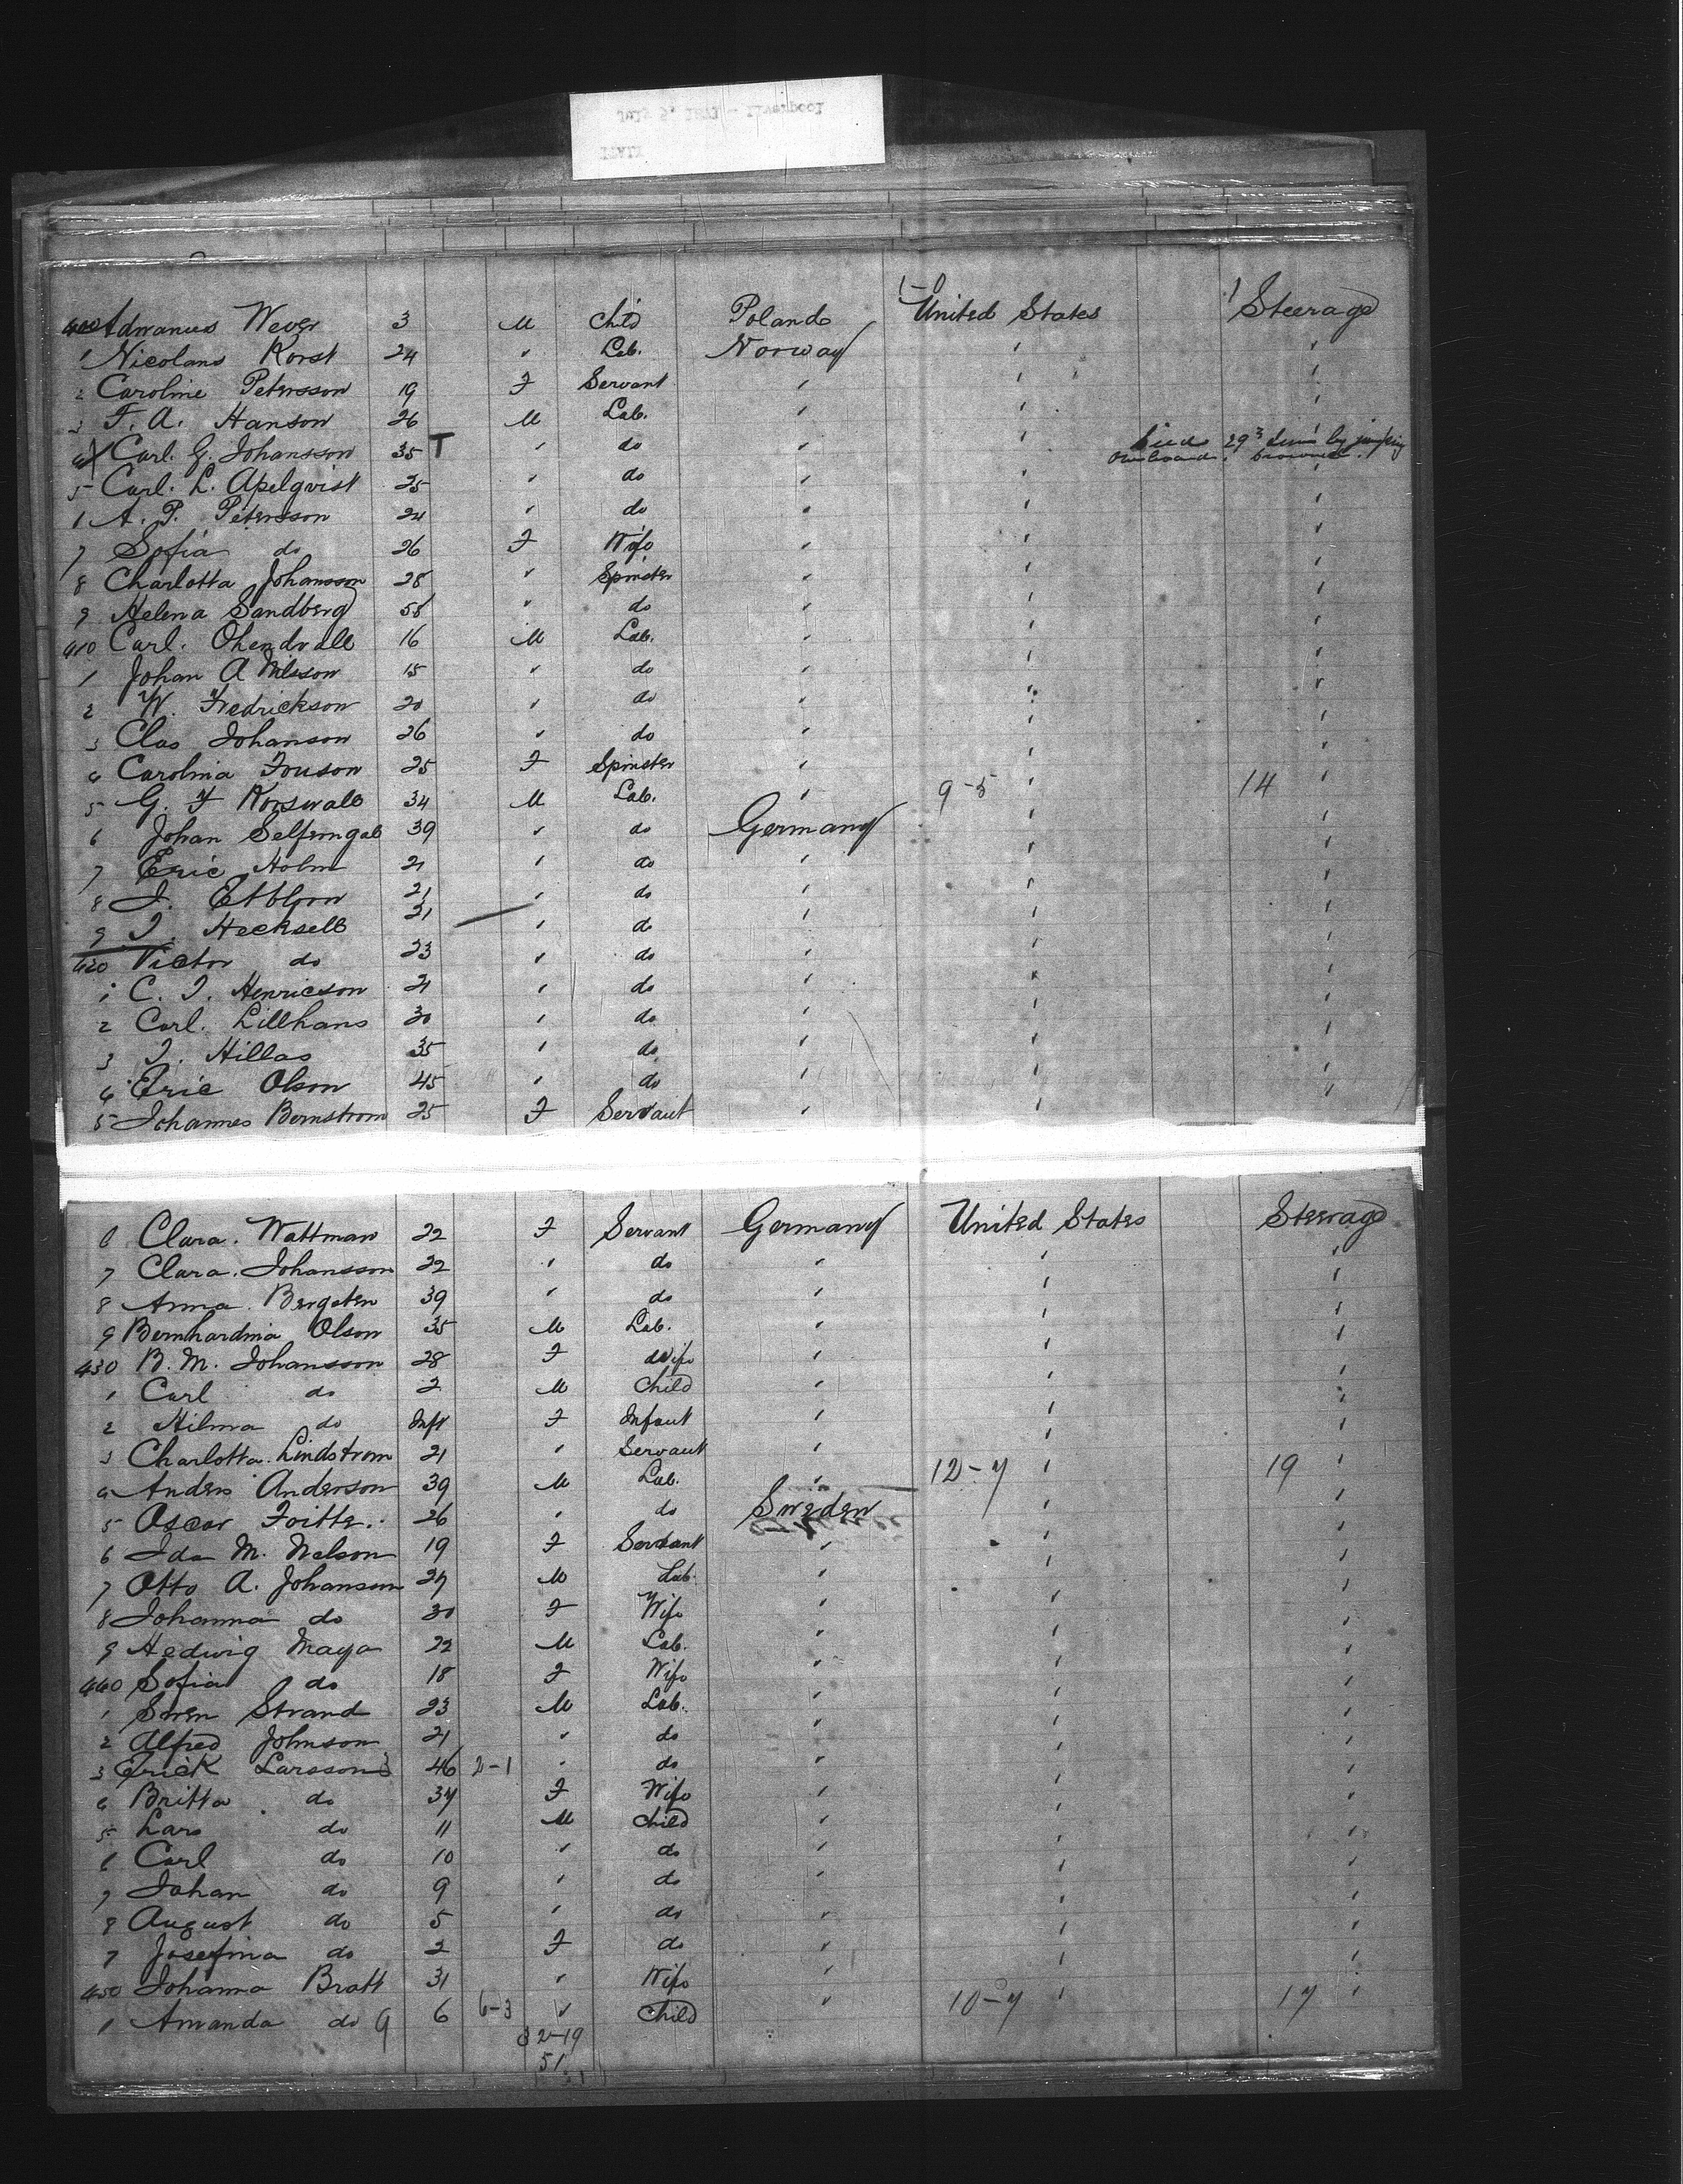 July 5, 1881 - Liverpool
1-0 1
400 Adrianus Wever 3 M Child Poland United States Steerage
1 Nicolans Korst 24 " Lab. Norway " "
2 Caroline Petersson 19 F Servant " " "
3 F. A. Hanson 26 M Lab. " " "
4 X Carl. G. Johansson 35 T " do " died 29th June by jumping
overboard. Drowned.
5 Carl. L. Apelqvist 25 " do " " "
6 A. P. Petersson 24 " do " " "
7 Sofia do 26 F Wife " " "
8 Charlotta Johansson 28 " Spinster " " "
9 Helena Sandberg 58 " do " " "
410 Carl. Ohendvall 16 M Lab. " " "
1 Johan A Nilsson 15 " do " " "
2 W. Fredrickson 20 " do " " "
3 Clas Johanson 26 " do " " "
4 Carolina Fouson 25 F Spinster " " "
5 G. F Korswall 34 M Lab. " 9-5 " 14 "
6 Johan Selfemgal 39 " do Germany " "
7 Eric Holm 21 " do " " "
8 J. Etblom 21 " do " " "
9 J. Hecksell 21 " do " " "
420 Victor do 23 " do " " "
1 C. J. Henricson 21 " do " " "
2 Carl. Lillhans 30 " do " " "
3 J. Hillas 35 " do " " "
4 Eric Olson 45 " do " " "
5 Johannes Bernstrom 25 F Servant " " "
6 Clara. Wattman 22 F Servant Germany United States Steerage
7 Clara. Johansson 22 " do " " "
8 Anna. Bergsten 39 " do " " "
9 Bernhardina Olson 35 M Lab. " " "
430 B. M. Johansson 28 F Wife " " "
1 Carl do 2 M Child " " "
2 Hilma do Inft F Infant " " "
3 Charlotta Lindstrom 21 " Servant " " "
4 Anders Anderson 39 M Lab. " 12-7 " 19 "
5 Oscar Foitte. 26 " do Sweden " "
6 Ida M. Nelson 19 F Servant " " "
7 Otto A. Johanson 27 M Lab. " " "
8 Johanna do 30 F Wife " " "
9 Hedwig Maya 22 M Lab. " " "
440 Sofia do 18 F Wife " " "
1 Sven Strand 23 M Lab. " " "
2 Alfred Johnson 21 " do " " "
3 Erick Larsson 46 2-1 " do " " "
4 Britta do 37 F Wife " " "
5 Lars do 11 M Child " " "
6 Carl do 10 " do " " "
7 Johan do 9 " do " " "
8 August do 5 " do " " "
9 Josefina do 2 F do " " "
450 Johanna Bratt 31 " Wife " 10-7 " 17 "
1 Amanda do 9 6 6-3 " Child "
32-19
51